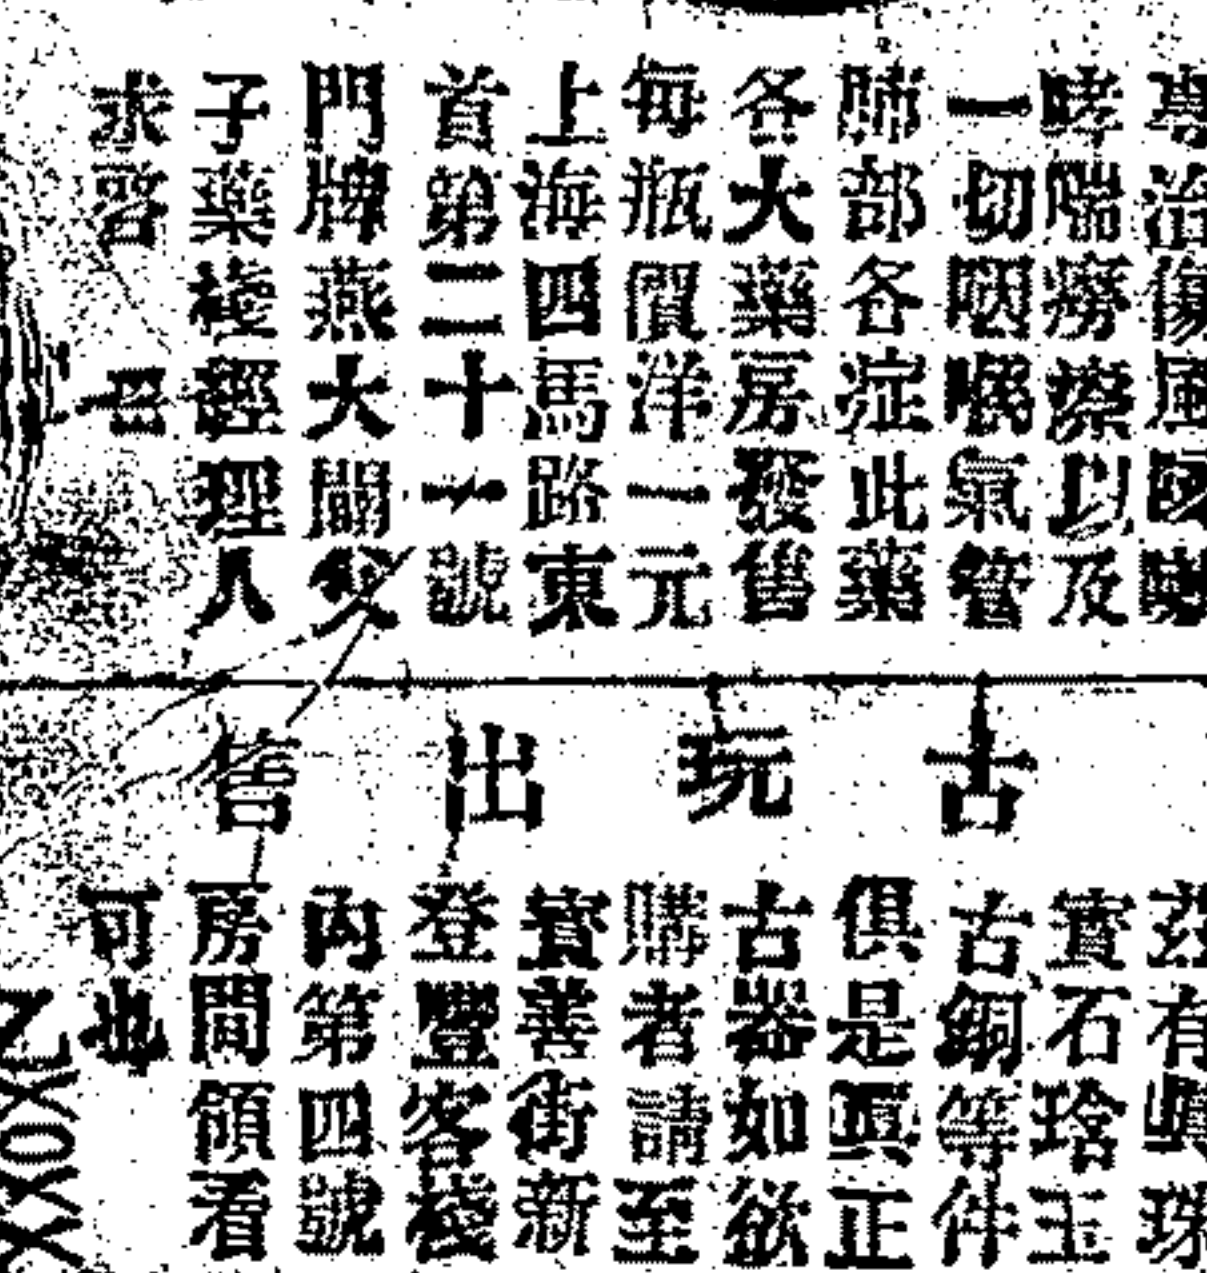 專治傷風咳嗽
哮喘癆瘵以及
一切咽喉氣管
肺部各症此藥
各大藥房發售
每瓶價洋一元
上海四馬路東
首第二十一號
門牌燕大關父
子藥棧經理人
求習 具
古玩出售
茲有真珠
寶石琀玉
古銅等件
俱是真正
古器如欲
購者請至
寶善街新
登豐客棧
內第四號
房間領看
可也